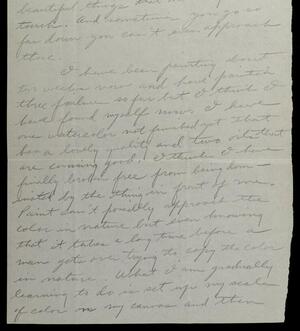 beautiful things that
touch. And sometimes you go so
far down you can't even approach
them.
I have been painting about
two weeks now and have painted
three failures so far but I think I
have found myself now. I have
one watercolor not finished yet that
has a lovely quality and two oils that
are coming good. I think I have
finally broken free from being dom-
inated by the thing in front of me.
Paint can't possibly approach the
color in nature but even knowing
that it takes a long time before a
man gets over trying to copy the color
in nature. What I am gradually
learning to do is set up my scale
of color on my canvas and then